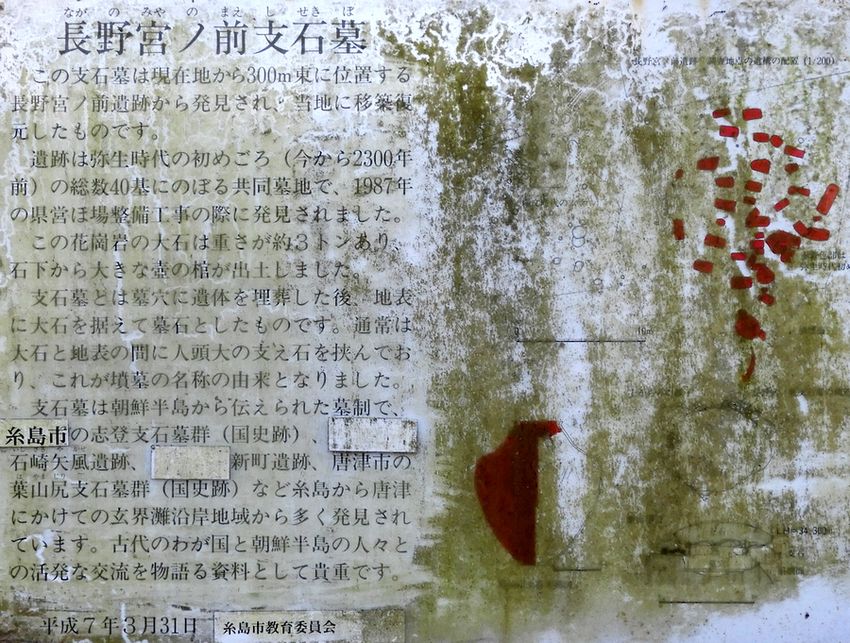 ながのみやのまえしせきぼ
長野宮ノ前支石墓
この支石墓は現在地から300m東に位置する
長野宮ノ前遺跡から発見され、当地に移築復
元したものです。
遺跡は弥生時代の初めごろ（今から2300年
前）の総数40基にのぼる共同墓地で、1987年
の県営ほ場整備工事の際に発見されました。
この花崗岩の大石は重さが約３トンあり、
石下から大きな壺の棺が出土しました。
支石墓とは墓穴に遺体を埋葬した後、地表
に大石を据えて墓石としたものです。通常は
大石と地表の間に人頭大の支え石を挟んでお
り、これが墳墓の名称の由来となりました。
支石墓は朝鮮半島から伝えられた墓制で、
糸島市の志登支石墓群（国史跡）、
石崎矢風遺跡、新町遺跡、唐津市の
葉山尻支石墓群（国史跡）など糸島から唐津
にかけての玄界灘沿岸地域から多く発見され
ています。古代のわが国と朝鮮半島の人々と
の活発な交流を物語る資料として貴重です。
平成７年３月31日 糸島市教育委員会
の遺構の配置（1/200）
0 10m